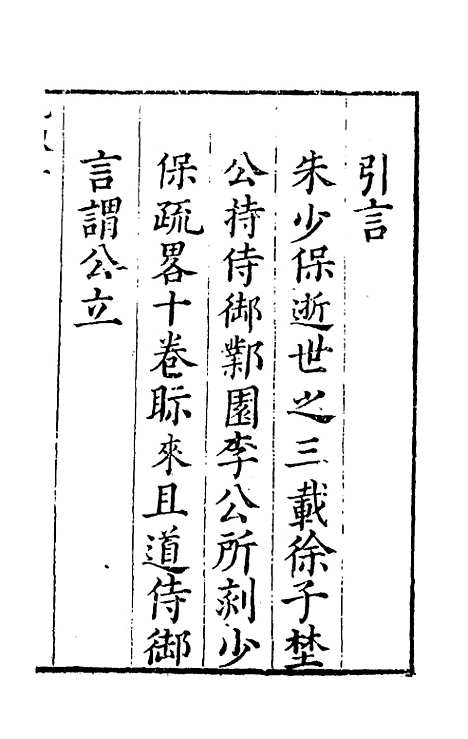 引言
朱少保逝世之三載徐子埜
公持侍御鄴園李公所刻少
保疏畧十卷眎來且道侍御
言謂公立